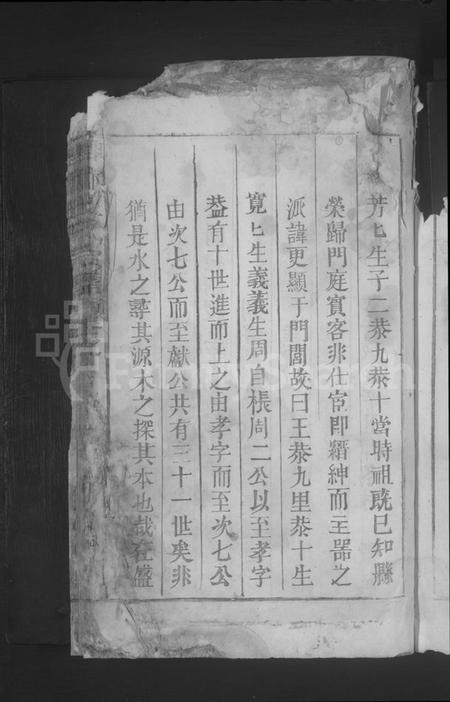 芳匕生子二恭九恭十當時祖旣已知縣
榮歸門庭賓客非仕宦即縉紳而主器之
派諱更顯于門閭故曰王恭九里恭十生
寛匕生義義生周自棖周二公以至孝字
葢有十世進而上之由孝字而至次七公
由次七公而至献公共有三十一世矣非
猶是水之尋其源木之探其本也哉在盛